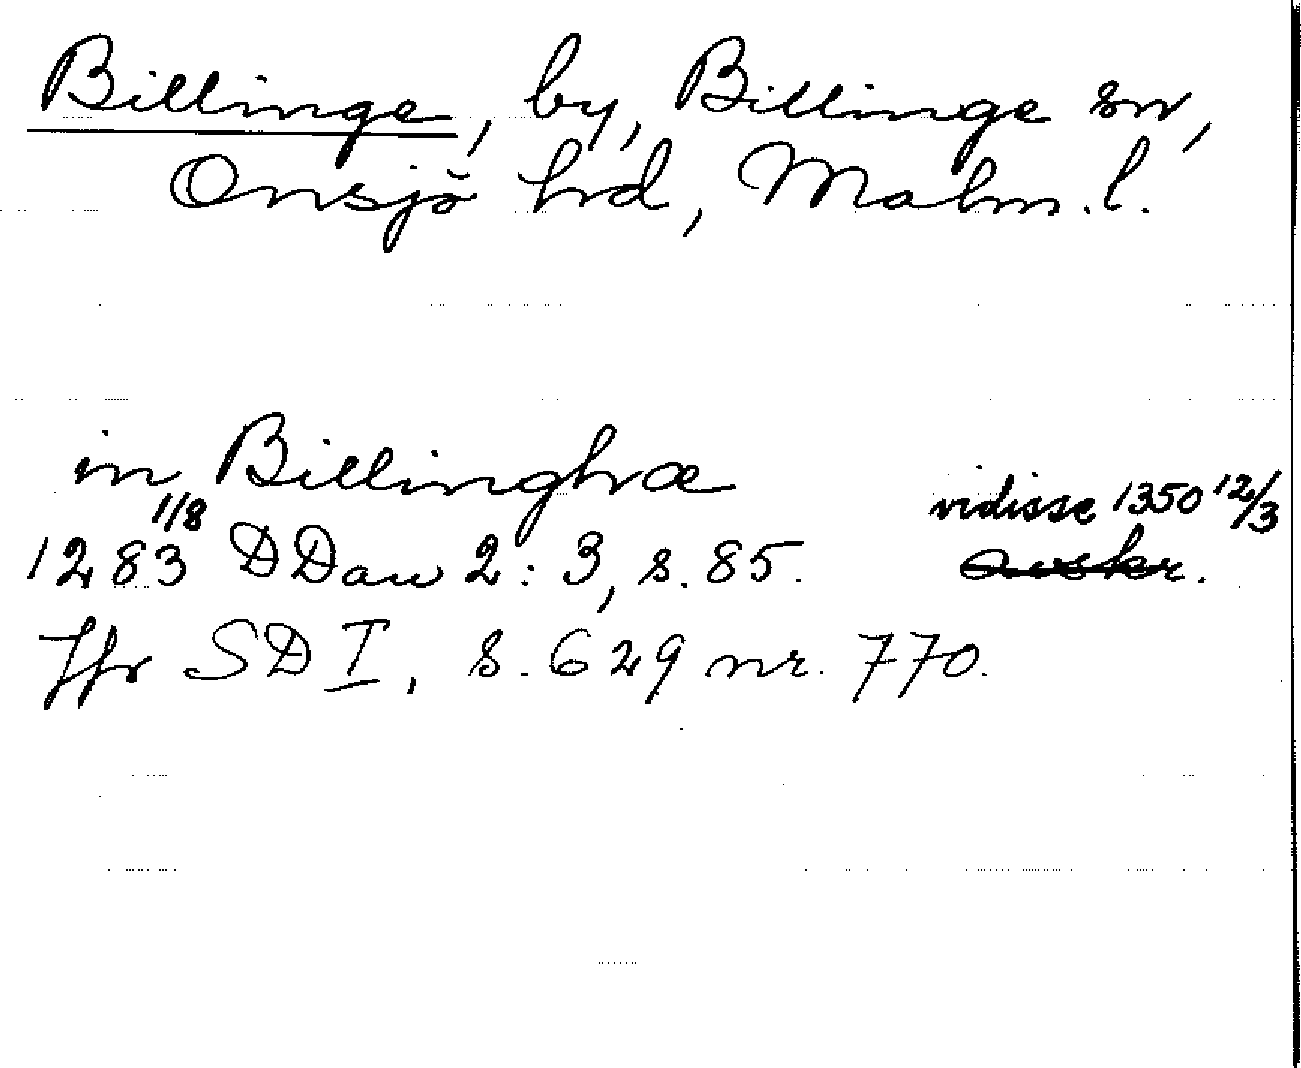 Billinge, by, Billinge sn,
Onsjö hd, Malm. l.
in Billinghæ
1283 1/8 DDan 2:3, s. 85. vidisse 1350 12/3
avskr.
Jfr SD I, s. 629 nr. 770.